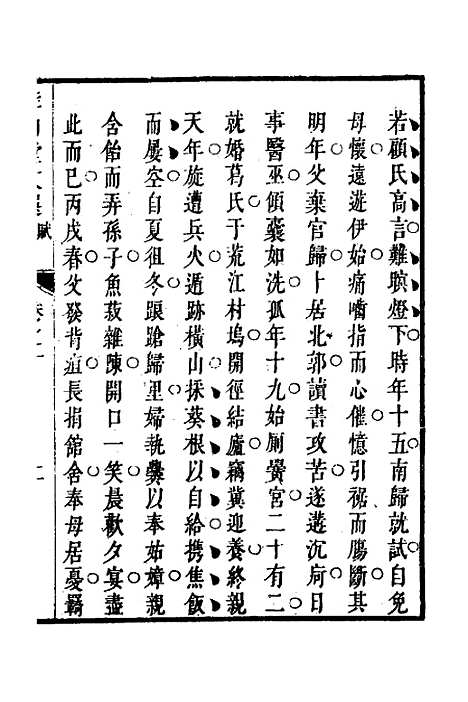 若顧氏高言難瞑燈下時年十五南歸就試自免
母懷遠遊伊始痛嚙指而心催憶引裾而膓斷其
明年父棄官歸卜居北郭讀書攻苦遂遘沉疴日
事醫巫傾囊如洗孤年十九始厠黌宮二十有二
就婚葛氏于荒江村塢開徑結廬竊冀迎養終親
天年旋遭兵火遁跡橫山採葵根以自給携焦飯
而屢空自夏徂冬踉蹌歸里婦執爨以奉姑嫜親
含飴而弄孫子魚菽雜陳開口一笑晨歡夕宴盡
此而已丙戌春父發背疽長捐館舍奉母居憂羇
賦